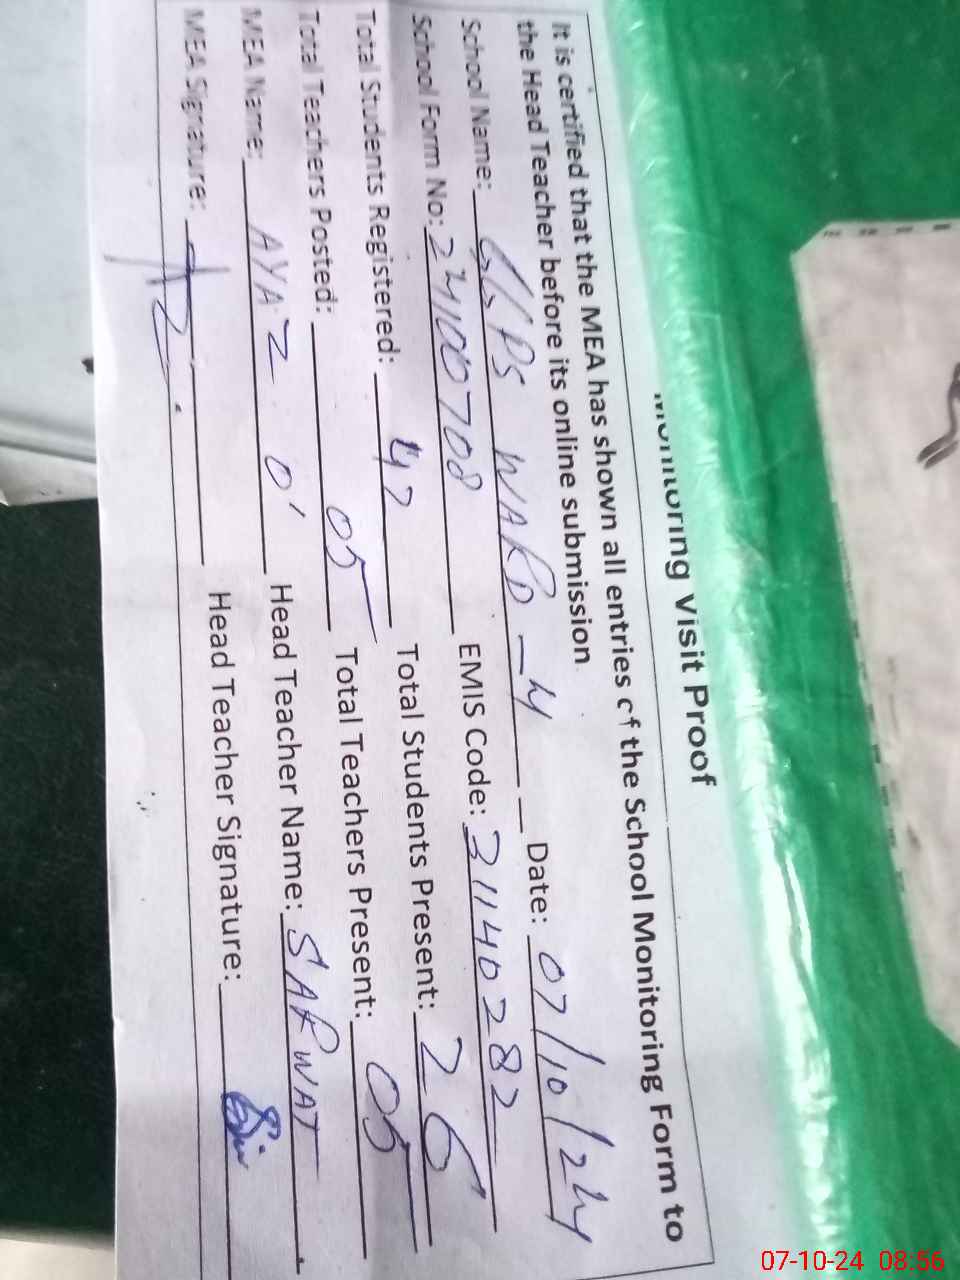 Monitoring Visit Proof
It is certified that the MEA has shown all entries of the School Monitoring Form to
the Head Teacher before its online submission
School Name: GGPS WARD-4 Date: 07/10/24
School Form No: 24100708 EMIS Code: 31140282
Total Students Registered: 42 Total Students Present: 26
Total Teachers Posted: 05 Total Teachers Present: 05
MEA Name: AYAZ Head Teacher Name: SARWAT
MEA Signature: Head Teacher Signature:
07-10-24 08:56